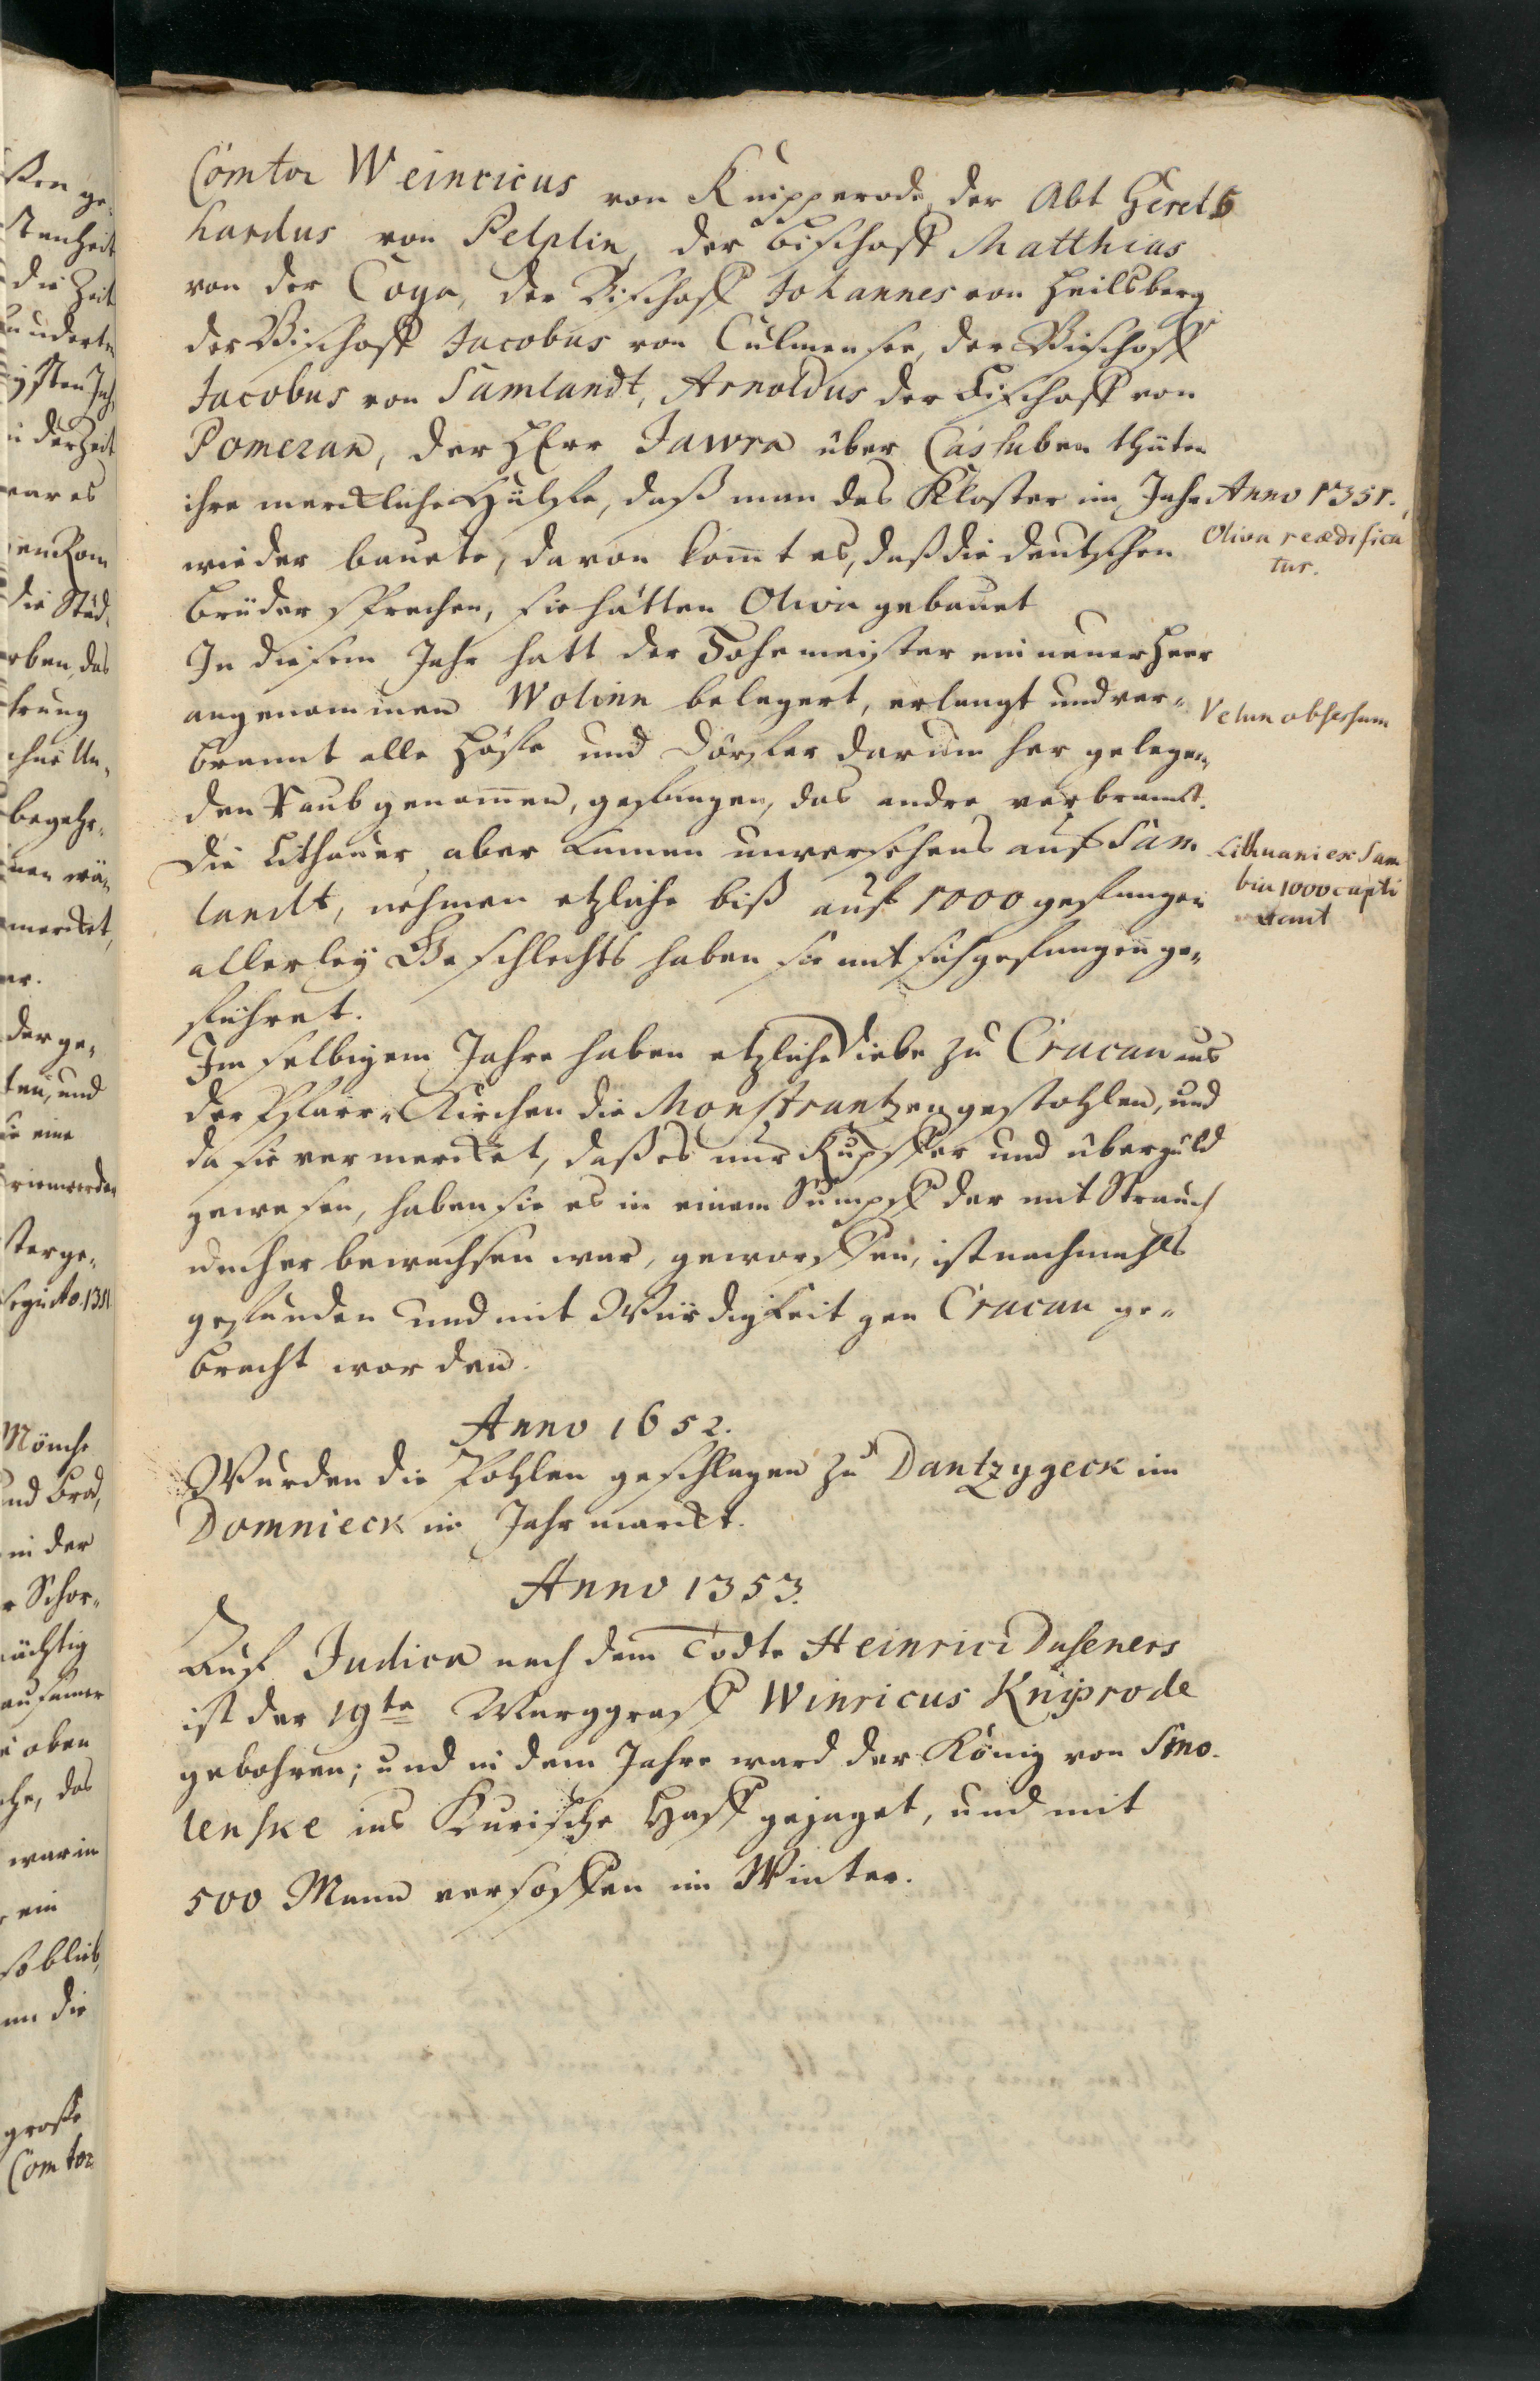 Comtor Weinricus von Knipperode, der Abt Gerd
hardus von Pelplin, der Bischoff Matthias
von der Coya, der Bischoff Johannes von Heilsberg
der Bischoff Jacobus von Culmensee, der Bischoff
Jacobus von Samlandt, Arnoldus der Bischoff von
Pomeran, der HErr Jawra über Cassuben thäten
ihre merckliche Hülffe, daß man das Kloster im Jahr Anno 1351.
wieder bauete, davon kom̄t es, daß die deutschen
Oliva reædifica
tur.
Brüder sprechen, sie hätten Oliva gebauet
In diesem Jahr hatt der Hohemeister ein neuer Heer
angenommen Wolinn belagert, erlangt und ver-
Velun obsessum
brannt alle Höffe und Dörffer darum her gelegen,
den Raub genom̄en, gefangen, das andre verbrannt.
Die Lithauer aber kamen unversehens auf Sam
Lithuani ex Sam
bia 1000 capti
landt, nehmen etzliche biß auf 1000 gefangen
allerley Geschlechts haben sie mit sich gefangen ge-
führet.
Im selbigem Jahre haben etzliche Diebe zu Cracau aus
der Pfarr-Kirchen die Monstrantzen gestohlen, und
da sie vermercket, daß es nur Kupffer und übergüld
gewesen, haben sie es in einem Sumpff der mit Strauch
umher bewachsen war, geworffen, ist nachmahls
gefunden und mit Würdigkeit gen Cracau ge-
bracht worden.
Anno 1652.
Wurden die Pohlen geschlagen zu Dantzygeck im
Domnieck im Jahrmarckt.
Anno 1353.
Auf Judica nach dem Todte Heinrici Duseners
ist der 19te Marggraff Winricus Kniprode
gebohren; und in dem Jahre ward der König von Smo-
lenske ins Kurische Haff gejaget, und mit
500 Mann versoffen im Winter.